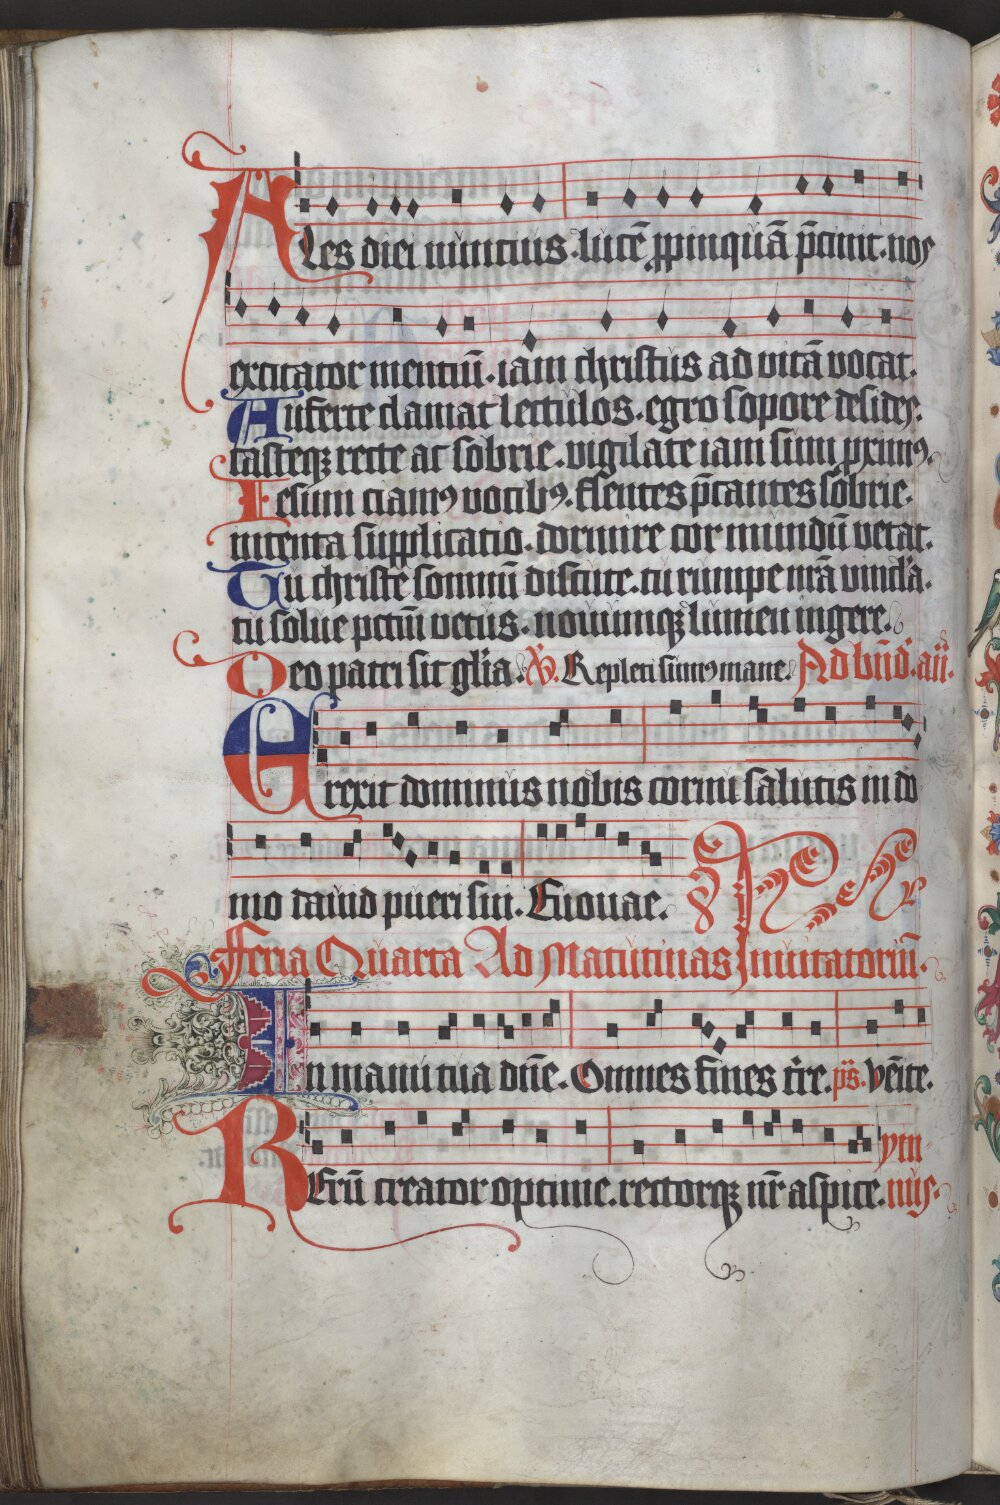 Ales diei nuncius. lucẽ ꝓpinquã p̃cinit. nos
excitator mentiũ. iam christus ad uitã uocat.
Auferte clamat lectulos. egro sopore desides.
casteqꝫ recte ac sobrie. uigilate iam sum ꝓximꝰ.
Iesum ciamꝰ uocibꝰ. flentes p̃cantes sobrie.
intenta supplicatio. dormire cor mundũ uetat.
Tu christe somnũ discute. tu rumpe nr̃a uincl'a.
tu solue pctm̃ uetus. nouumqꝫ lumen ingere.
Deo patri sit gl'ia. V. Repleti sumꝰ mane. Ad bñd. añ.
Erexit dominus nobis cornu salutis in do
mo dauid pueri sui. Euouae.
Feria Quarta Ad Matutinas Inuitatoriũ.
In manu tua dñe. Omnes fines tr̃e. p̃s. Venite.
ym
Rerũ creator optime. rectorqꝫ nr̃ aspice. nus.